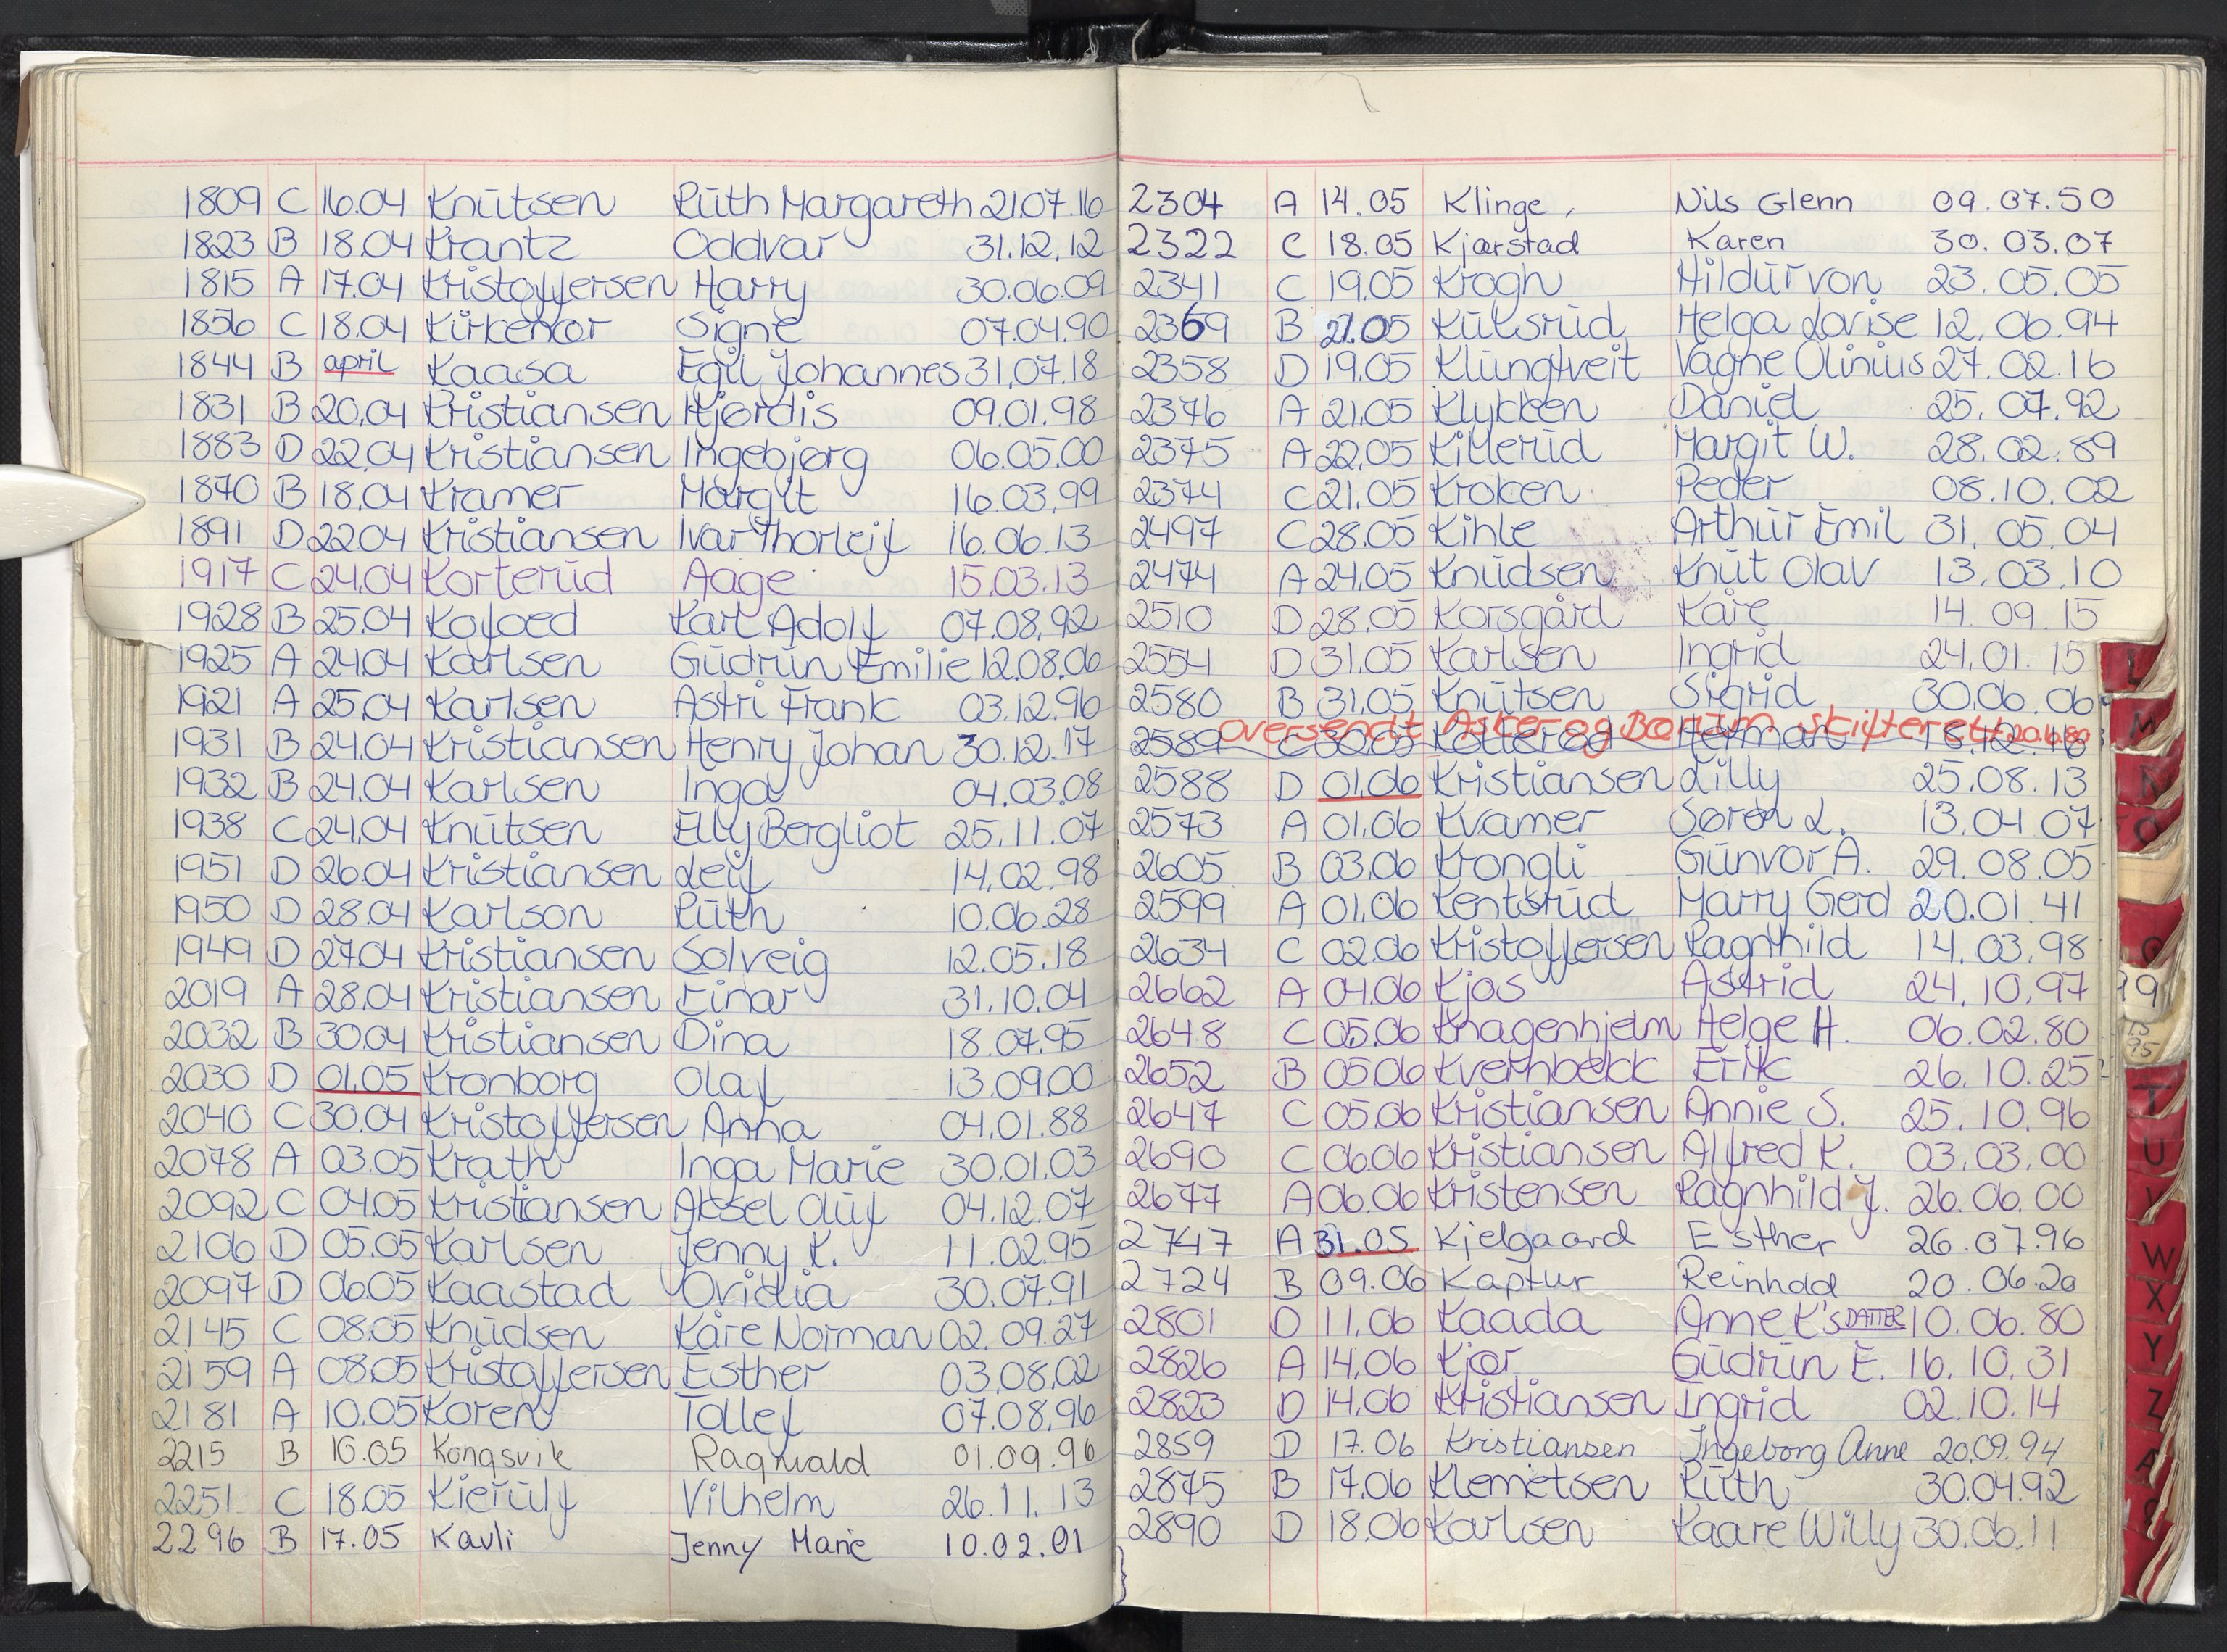 1809 C 16.04 Knutsen Ruth Margareth 21.07.16
1823 B 18.04 Krantz Oddvar 31.12.12
1815 A 17.04 Kristoffersen Harry 30.06.09
1856 C 18.04 Kirkemor Signe 07.04.90
1844 B april Kaasa Egil Johannes 31.07.18
1831 B 20.04 Kristiansen Hjørdis 09.01.98
1883 D 22.04 Kristiansen Ingebjørg 06.05.00
1870 B 18.04 Kramer Margit 16.03.99
1891 D 22.04 Kristiansen Ivar Thorleif 16.06.13
1917 C 24.04 Korterud Aage 15.03.13
1928 B 25.04 Kofoed Karl Adolf 07.08.92
1925 A 24.04 Karlsen Gudrun Emilie 12.08.06
1921 A 25.04 Karlsen Astri Frank 03.12.96
1931 B 24.04 Kristiansen Henry Johan 30.12.17
1932 B 24.04 Karlsen Inga 04.03.08
1938 C 24.04 Knutsen Elly Bergliot 25.11.07
1951 D 26.04 Kristiansen Leif 14.02.98
1950 D 28.04 Karlson Ruth 10.06.28
1949 D 27.04 Kristiansen Solveig 12.05.18
2019 A 28.04 Kristiansen Einar 31.10.04
2032 B 30.04 Kristiansen Dina 18.07.95
2030 D 01.05 Kronborg Olaf 13.09.00
2040 C 30.04 Kristoffersen Anna 04.01.88
2078 A 03.05 Krath Inga Marie 30.01.03
2092 C 04.05 Kristiansen Aksel Oluf 04.12.07
2106 D 05.05 Karlsen Jenny K. 11.02.95
2097 D 06.05 Kaastad Ovidia 30.07.91
2145 C 08.05 Knudsen Kåre Norman 02.09.27
2159 A 08.05 Kristoffersen Esther 03.08.02
2181 A 10.05 Koren Tollef 07.08.96
2215 B 16.05 Kongsvik Ragnvald 01.09.96
2251 C 18.05 Kierulf Vilhelm 26.11.13
2296 B 17.05 Kavli Jenny Marie 10.02.01
2304 A 14.05 Klinge, Nils Glenn 09.07.50
2322 C 18.05 Kjærstad Karen 30.03.07
2341 C 19.05 Krogh Hildur von 23.05.05
2369 B 21.05 Kulsrud Helga Lovise 12.06.94
2358 D 19.05 Klungtveit Vagne Olinius 27.02.16
2376 A 21.05 Klycken Daniel 25.07.92
2375 A 22.05 Killerud Margit W. 28.02.89
2374 C 21.05 Kroken Peder 08.10.02
2497 C 28.05 Kihle Arthur Emil 31.05.04
2474 A 24.05 Knudsen Knut Olav 13.03.10
2510 D 28.05 Korsgård Kåre 14.09.15
2554 D 31.05 Karlsen Ingrid 24.01.15
2580 B 31.05 Knutsen Sigrid 30.06.06
oversendt Asker og Bærum skifterett 20.4.89
2589 C 30.05 Herman
2588 D 01.06 Kristiansen Lilly 25.08.13
2573 A 01.06 Kvamer Søren L. 13.04.07
2605 B 03.06 Krongli Gunvor A. 29.08.05
2599 A 01.06 Kentsrud Harry Gerd 20.01.41
2634 C 02.06 Kristoffersen Ragnhild 14.03.98
2662 A 04.06 Kjos Astrid 24.10.97
2648 C 05.06 Khagenhjelm Helge H. 06.02.80
2652 B 05.06 Kvernbekk Erik 26.10.25
2647 C 05.06 Kristiansen Annie S. 25.10.96
2690 C 06.06 Kristiansen Alfred K. 03.03.00
2677 A 06.06 Kristensen Ragnhild J. 26.06.00
2747 A 31.05 Kjelgaard Esther 26.07.96
2724 B 09.06 Kaptur Reinhold 20.06.20
2801 D 11.06 Kaada Anne K's DATTER 10.06.80
2826 A 14.06 Kjør Gudrun E. 16.10.31
2823 D 14.06 Kristiansen Ingrid 02.10.14
2859 D 17.06 Kristiansen Ingeborg Anne 20.09.94
2875 B 17.06 Klemetsen Ruth 30.04.92
2890 D 18.06 Karlsen Kaare Willy 30.06.11
L
M
N
O
T
U
V
W
X
Y
Z